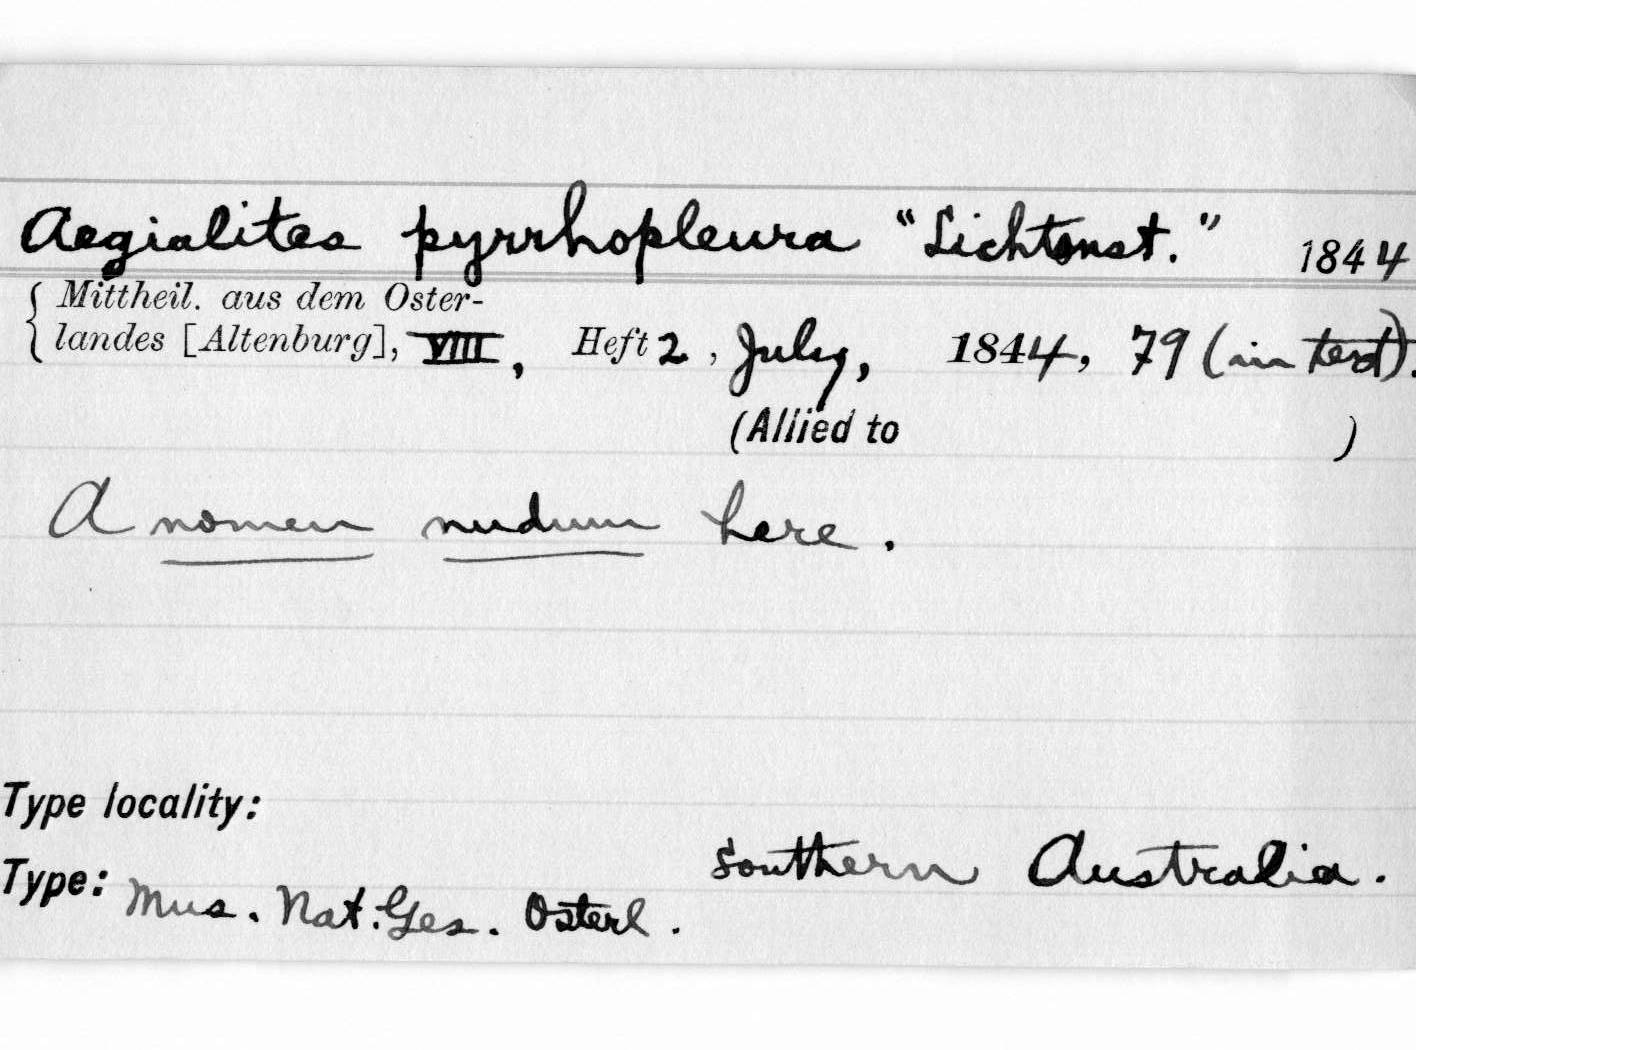 Aegialites pyrrhopleura "Lichtenst." 1844
Mittheil. aus dem Oster-
landes [Altenburg], VIII, Heft 2, July, 1844, 79 (in text).
(Allied to )
A nomen nudum here.
Type locality:
Southern Australia.
Type: Mus. Nat. Ges. Osterl.